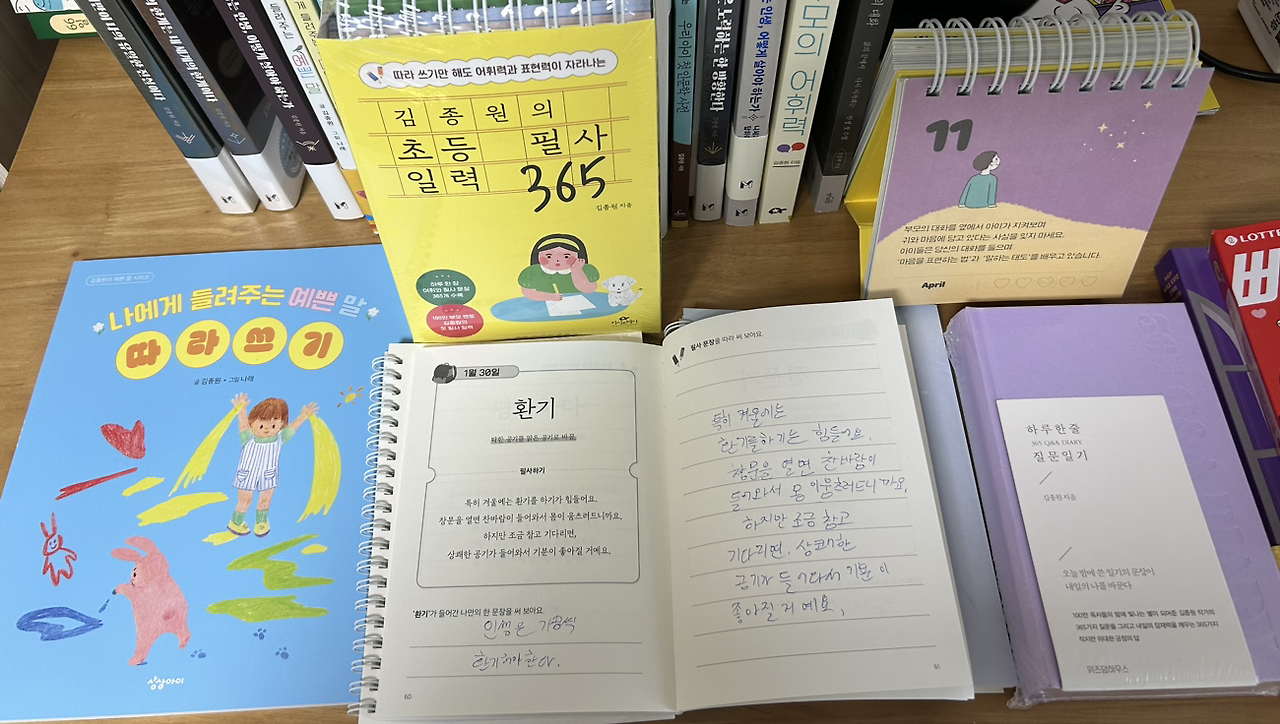 우리 아이 첫 인문학 사전
부모의 어휘력
김종원 지음
따라 쓰기만 해도 어휘력과 표현력이 자라나는
김종원의
초등 필사
일력 365
김종원 지음
하루 한 장
어휘와 필사 문장
365개 수록
100만 부모 멘토
김종원의
첫 필사 일력
11
부모의 대화를 옆에서 아이가 지켜보며
귀와 마음에 담고 있다는 사실을 잊지 마세요.
아이들은 당신의 대화를 들으며
'마음을 표현하는 법'과 '말하는 태도'를 배우고 있습니다.
April
LOTTE
빼
나에게 들려주는 예쁜 말
따라쓰기
글 김종원 · 그림 나래
상상아이
1월 30일
환기
탁한 공기를 맑은 공기로 바꿈.
필사하기
특히 겨울에는 환기를 하기가 힘들어요.
창문을 열면 찬바람이 들어와서 몸이 움츠러드니까요.
하지만 조금 참고 기다리면,
상쾌한 공기가 들어와서 기분이 좋아질 거예요.
'환기'가 들어간 나만의 한 문장을 써 보아요.
인생은 가끔씩
환기해야 한다.
60
필사 문장을 따라 써 보아요.
특히 겨울에는
환기를 하기는 힘들어요.
창문을 열면 찬바람이
들어와서 몸이 움츠러드니까요.
하지만 조금 참고
기다리면, 상쾌한
공기가 들어와서 기분이
좋아질 거예요.
61
하루 한 줄
365 Q&A DIARY
질문 일기
김종원 지음
오늘 밤에 쓴 일기의 문장이
내일의 나를 바꾼다
100만 독자들의 밤에 빛나는 별이 되어준 김종원 작가의
365가지 질문을 그리고 내일의 잠재력을 깨우는 365가지
작지만 위대한 긍정의 답
위즈덤하우스